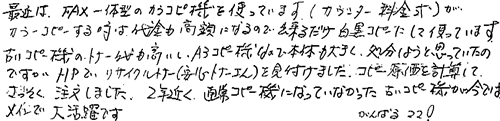 最近は、FAX一体型のカラコピ機を使っています(カウンター料金式)が
カラーコピーする時は代金も高額になるので 極力だけ白黒コピーにして使っています
古いコピー機のトナー代も高いし、A3コピー機なので本体も大きく、処分しようと思っていたの
ですが HPで、リサイクルトナー(安心トナーさん)を見付けました。コピー原価を計算して、
さっそく 注文しました。2年近く、画像コピー機になっていなかった 古いコピー機が今では
メインで 大活躍です がんばる コロ!